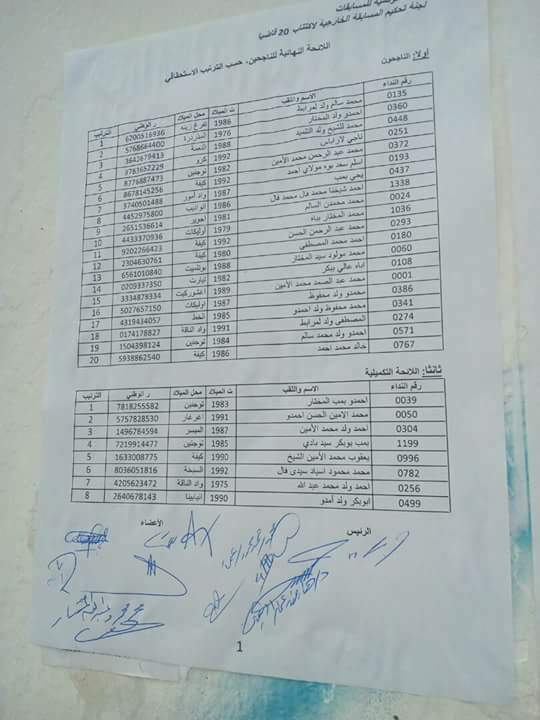 للمسابقات
لجنة تحكيم المسابقة الخارجية لاكتتاب 20 قاضيا
اللائحة النهائية للناجحين، حسب الترتيب الاستحقاقي
أولا: الناجحون
رقم النداء الاسم واللقب ت الميلاد محل الميلاد ر.الوطني الترتيب
0135 محمد سالم ولد لمرابط 1986 6200516936 1
0360 احمدو ولد المختار 1976 المذرذرة 5768664400 2
0448 محمد الشيخ ولد 1988 النعمة 1642679413 3
0251 ناجي لارباس 1992 كرو 3783657229 4
0372 محمد عبد الرحمن محمد الأمين 1982 توجنين 8776887473 5
0193 اسلم سعد بوه مولاي احمد 1992 كيفة 8678145256 6
0437 يحي بمب 1987 واد أمور 3740501488 7
1338 احمد شيخنا محمد فال محمد فال 1986 4452975800 8
0024 محمد محمدن السالم 1981 اجوير 2651536614 9
1036 محمد المختار بباه 1979 اوليكات 4433370936 10
0293 محمد عبد الرحمن الحسن 1992 كيفة 9202266423 11
0180 احمد محمد المصطفي 1980 كيفة 2304630761 12
0060 محمد مولود سيد المختار 1982 بوتلميت 6561010840 13
0108 اباه عالي ببكر 1988 تيارت 0209337350 14
0001 محمد عبد الصمد محمد الأمين 1989 اغشوركيت 3334878334 15
0386 محمدو ولد محفوظ 1987 اوليكات 5027657150 16
0341 محمد محفوظ ولد احمدو 1985 الخط 4319434057 17
0274 المصطفى ولد لمرابط 1991 واد الناقة 0174178827 18
0571 احمدو ولد محمد سالم 1984 توجنين 1504398124 19
0767 خالد محمد احمد 1986 كيفة 5938862540 20
ثانثا: اللائحة التكميلية
رقم النداء الاسم واللقب ت الميلاد محل الميلاد ر.الوطني الترتيب
0039 احمدو بمب المختار 1983 توجنين 7818255582 1
0050 محمد الامين الحسن احمدو 1991 غرغار 5757828530 2
0304 احمد ولد محمد الأمين 1987 الميسر 1496784594 3
1199 بمب بوبكر سيد بادي 1985 توجنين 7219914477 4
0996 يعقوب محمد الأمين الشيخ 1990 كيفة 1633008775 5
0782 محمد محمود اسياد سيدى فال 1992 السبخة 8036051816 6
0256 احمد ولد محمد عبد الله 1975 واد الناقة 4205623472 7
0499 ابوبكر ولد أمدو 1990 انبابينا 2640678143 8
الرئيس الأعضاء
1